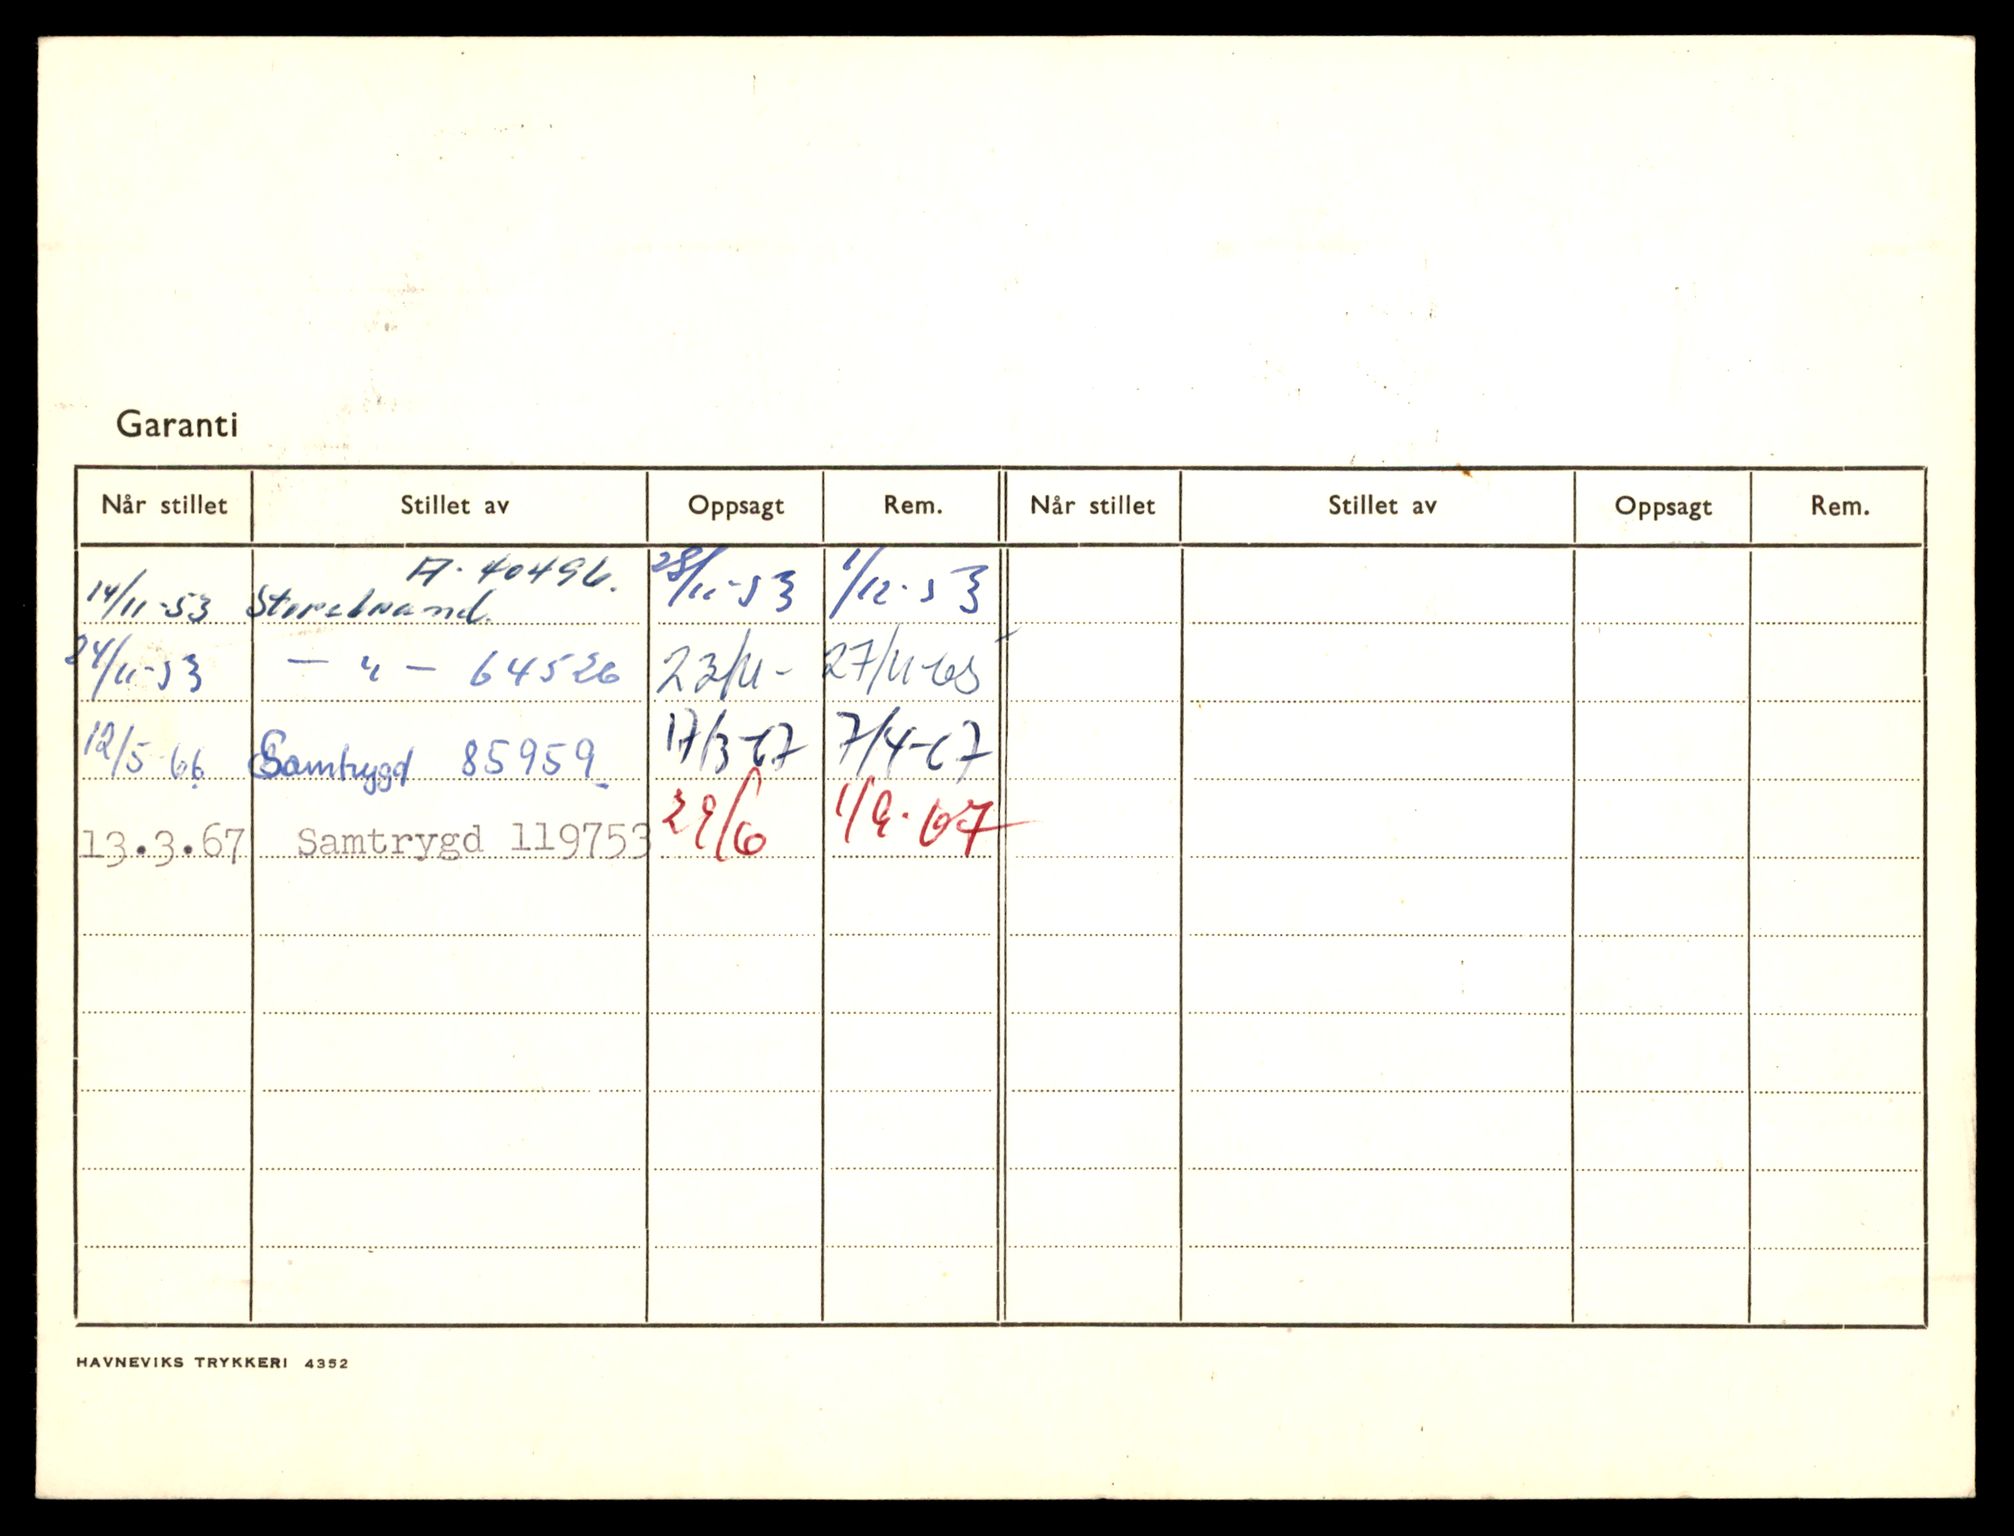 Garanti
Når stillet Stillet av Oppsagt Rem. Når stillet Stillet av Oppsagt Rem.
A. 40496.
14/11-53 Storebrand. 28/11-53 1/12-53
24/11-53 — " — 64526 23/11- 27/11-65
12/5-66. Samtrygd 85959 17/3-67 7/4-67
13.3.67 Samtrygd 119753 29/6 1/9-67
HAVNEVIKS TRYKKERI 4352